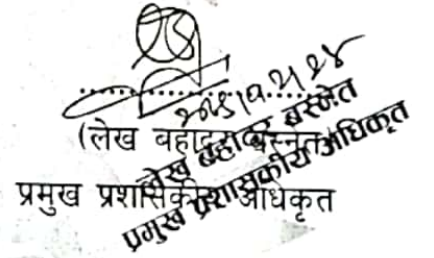 (लेख बहादुर बस्नेत)
प्रमुख प्रशासकीय अधिकृत
लेख बहादुर बस्नेत
प्रमुख प्रशासकीय अधिकृत